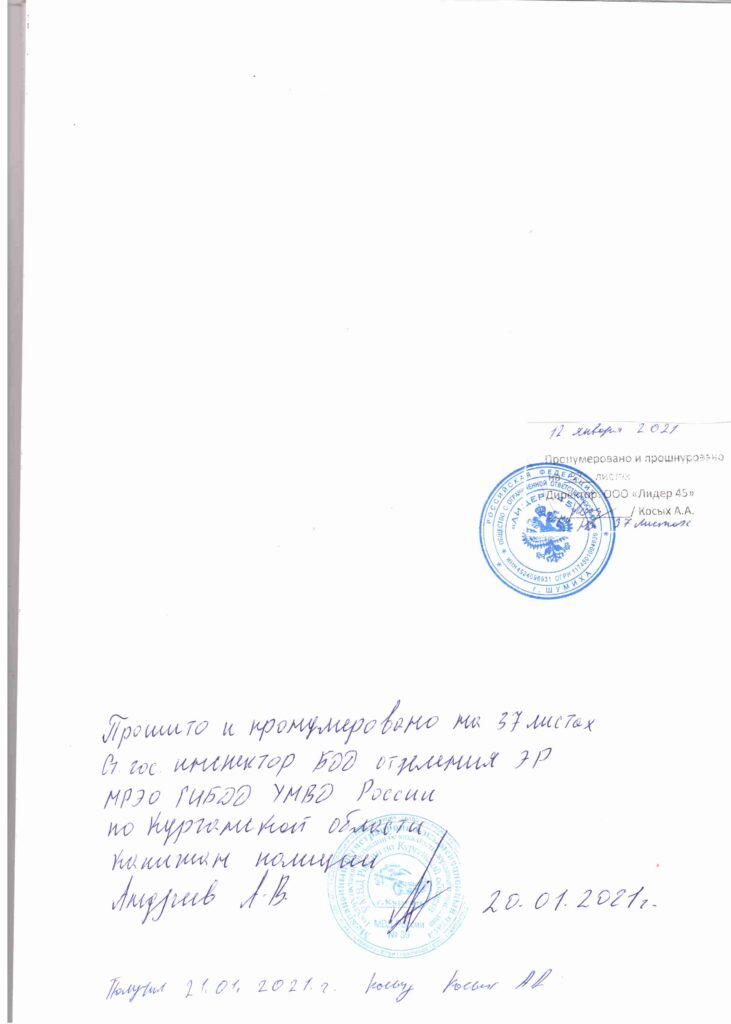 12 января 2021
Пронумеровано и прошнуровано
на листах
Директор ООО «Лидер 45»
/ Косых А.А.
37 листах
РОССИЙСКАЯ ФЕДЕРАЦИЯ
ОБЩЕСТВО С ОГРАНИЧЕННОЙ ОТВЕТСТВЕННОСТЬЮ
"ЛИДЕР 45"
ИНН 4524096931 ОГРН
г. ШУМИХА
Прошито и пронумеровано на 37 листах
Ст гос. инспектор БДД отделения ЭР
МРЭО ГИБДД УМВД России
по Курганской области
капитан полиции
Андреев А.В.
20.01.2021г.
г.Курган
МВД России
Получил 21.01.2021.г. Косых